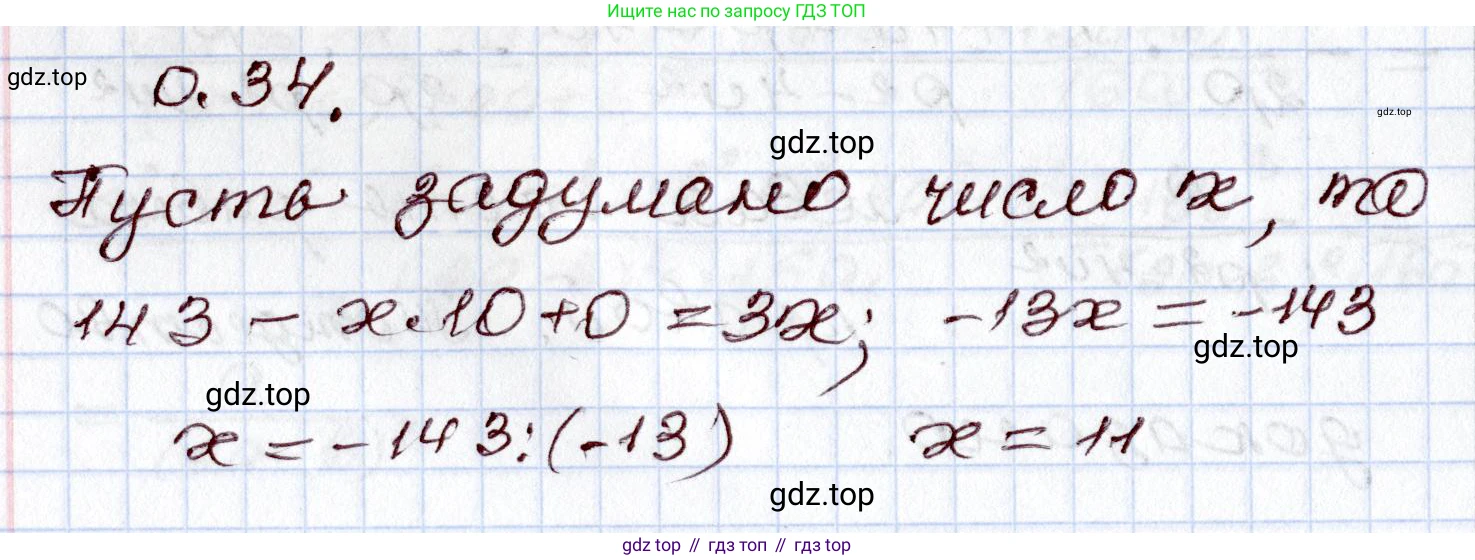 Ищите нас по запросу ГДЗ ТОП
gdz.top
0.34.
gdz.top
gdz.top
Пусть задумано число x, то
143 - x·10+0 = 3x; -13x = -143
gdz.top
gdz.top
x = -143:(-13) x = 11
gdz.top
gdz top // гдз топ // gdz top